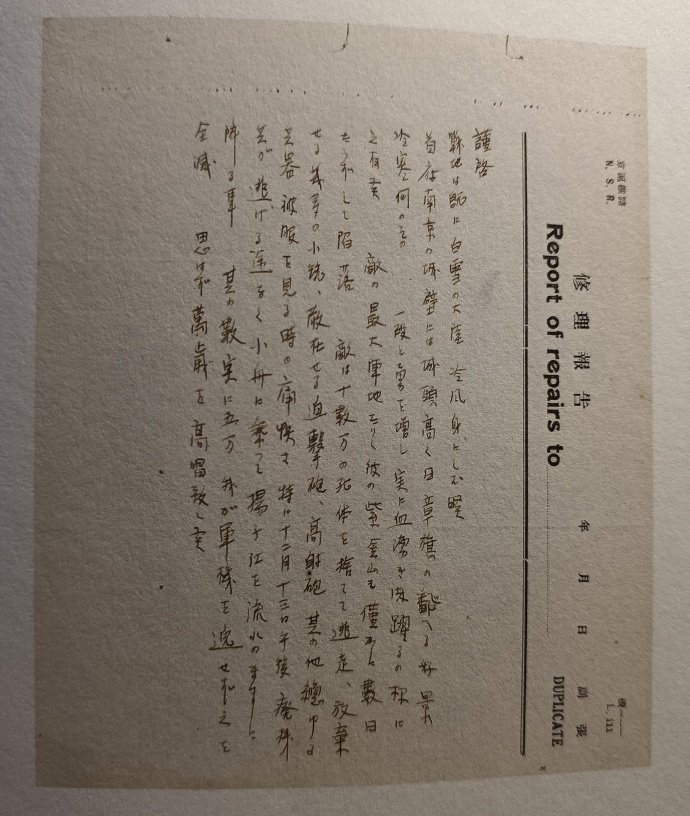 京滬鉄路
N. S. R.
修理報告
Report of repairs to
年 月 日
機一一
L. 111
副張
DUPLICATE
謹啓
戰地は既に白雪の大陸 冷風身にしむ
首府南京の城壁には城頭高く日章旗の翻へる好景
冷寒何のその 一段と勇を増し実に血湧き肉躍るの板に
之有 敵の最大軍地たりし彼の紫金山も僅かに数日
たらずして陥落 敵は十数万の死体を捨てて逃走、放棄
せる幾多の小銃、散在せる迫撃砲、高射砲 其の他
兵器被服を見る時の痛快さ 特に十二月十三日午後
兵が逃げる途なく小舟に乗って揚子江を流れのまゝに
降る事 其の数実に五万 我が軍 を逸せず之を
全滅 思わず萬歳を高唱致し